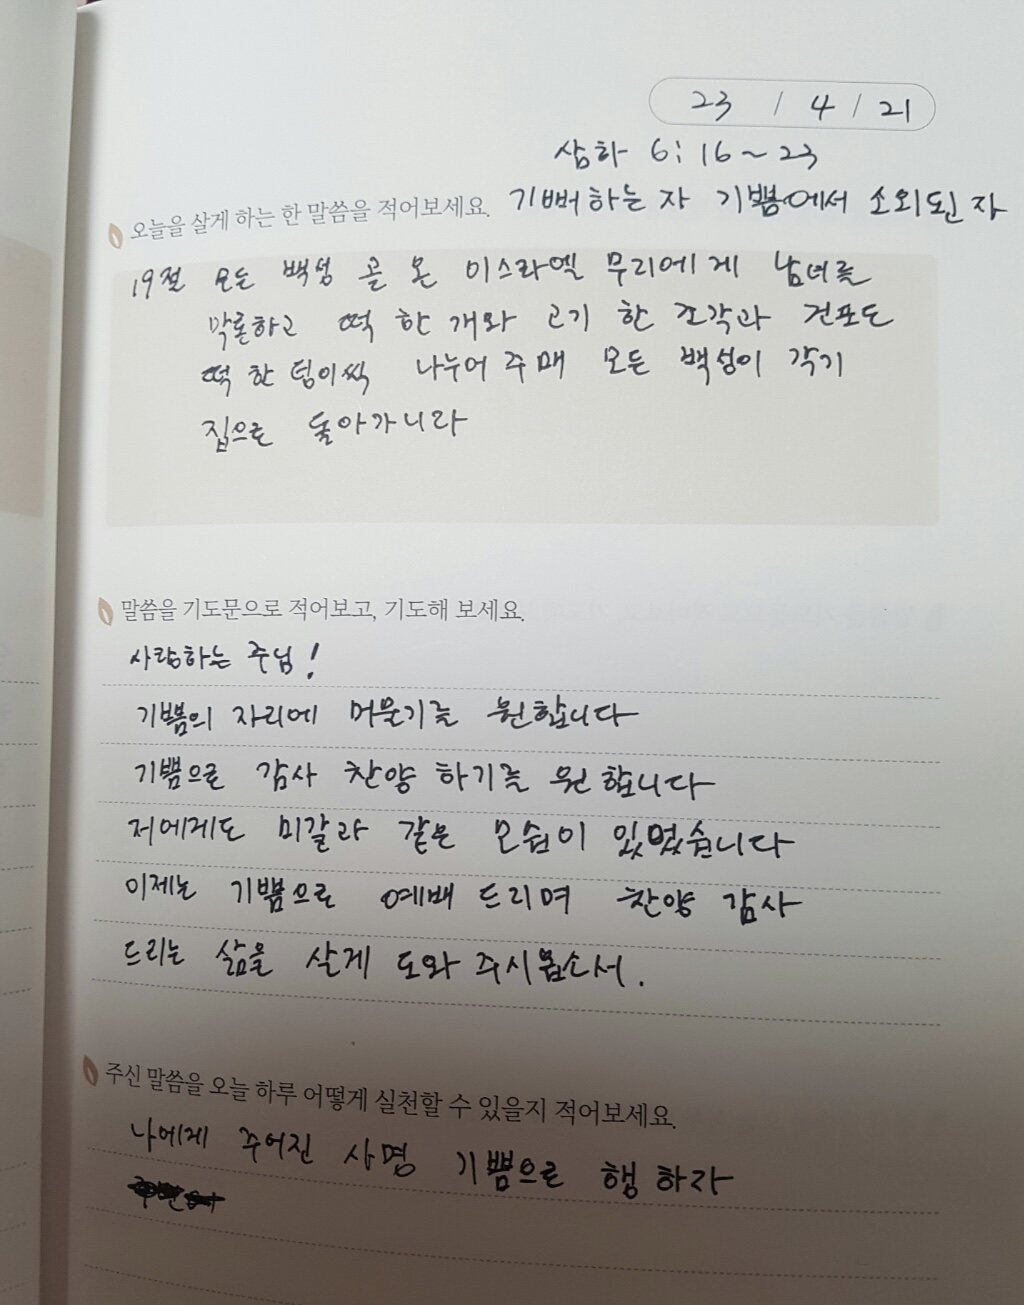 23 / 4 / 21
삼하 6:16~23
기뻐하는 자 기쁨에서 소외된 자
오늘을 살게 하는 한 말씀을 적어보세요.
19절 모든 백성 곧 온 이스라엘 무리에게 남녀를
막론하고 떡 한 개와 고기 한 조각과 건포도
떡 한 덩이씩 나누어 주매 모든 백성이 각기
집으로 돌아가니라
말씀을 기도문으로 적어보고, 기도해 보세요.
사랑하는 주님!
기쁨의 자리에 머물기를 원합니다
기쁨으로 감사 찬양 하기를 원합니다
저에게도 미갈과 같은 모습이 있었습니다
이제는 기쁨으로 예배 드리며 찬양 감사
드리는 삶을 살게 도와 주시옵소서.
주신 말씀을 오늘 하루 어떻게 실천할 수 있을지 적어보세요.
나에게 주어진 사명 기쁨으로 행하자